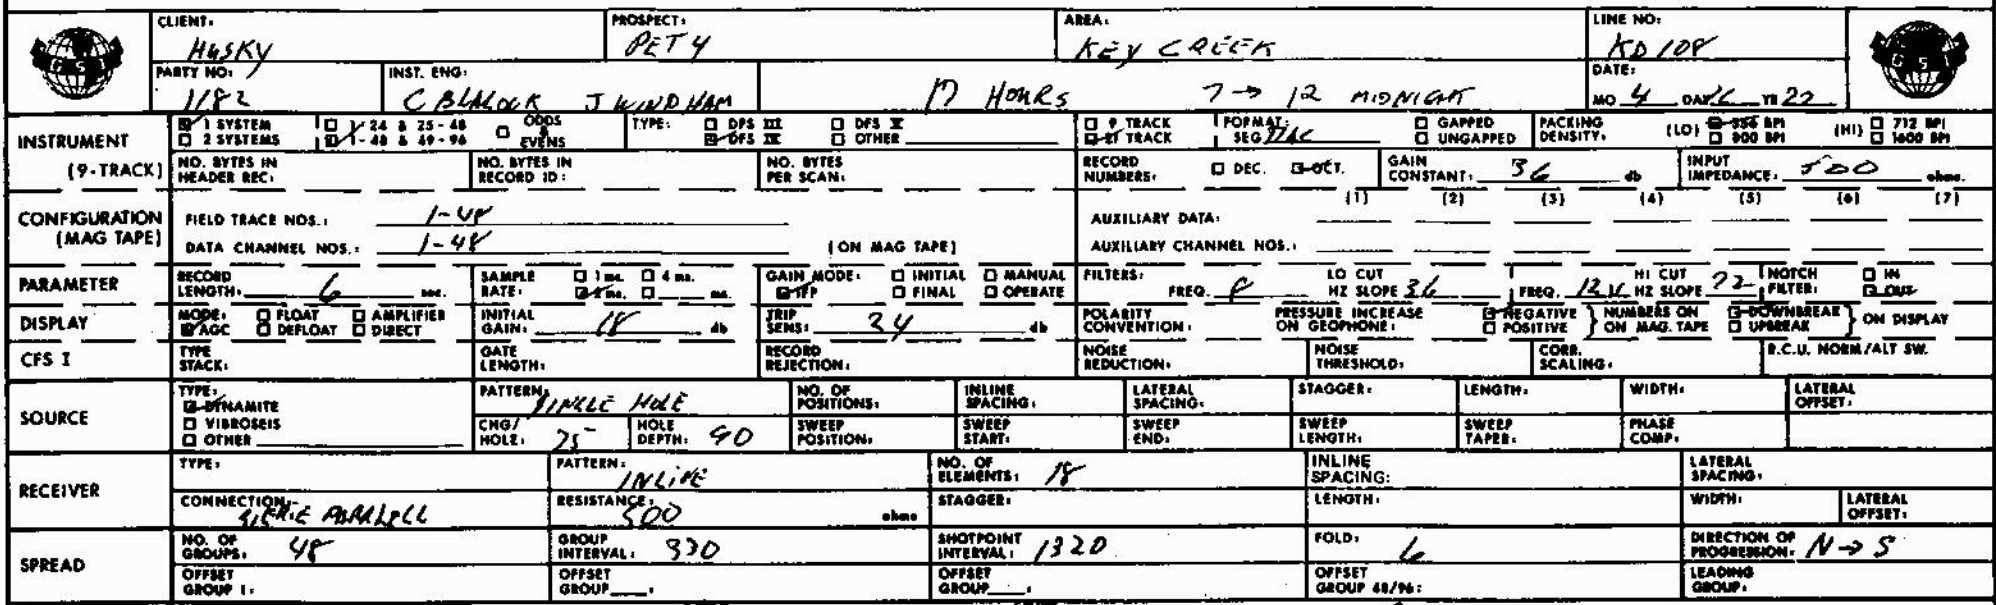 CLIENT: HUSKY PROSPECT: PET 4 AREA: KEY CREEK LINE NO: KD 108
GSI GSI
PARTY NO: 1182 INST. ENG: C BLALOCK J WINDHAM 17 HOURS 7 → 12 MIDNIGHT DATE: MO 4 DAY YR
INSTRUMENT 1 SYSTEM 1-24 & 25-48 ODDS & EVENS TYPE: DFS III DFS V 9 TRACK FORMAT: SEG GAPPED PACKING DENSITY: (LO) 556 BPI (HI) 712 BPI
2 SYSTEMS 1-48 & 49-96 DFS IV OTHER 21 TRACK UNGAPPED 800 BPI 1600 BPI
(9-TRACK) NO. BYTES IN HEADER REC: NO. BYTES IN RECORD ID: NO. BYTES PER SCAN: RECORD NUMBERS: DEC. OCT. GAIN CONSTANT: 36 db INPUT IMPEDANCE: 500 ohms.
CONFIGURATION (MAG TAPE) FIELD TRACE NOS.: 1-48 AUXILIARY DATA: (1) (2) (3) (4) (5) (6) (7)
DATA CHANNEL NOS.: 1-48 (ON MAG TAPE) AUXILIARY CHANNEL NOS.:
PARAMETER RECORD LENGTH: 6 sec. SAMPLE RATE: 1 ms. 4 ms. 2 ms. ms. GAIN MODE: INITIAL MANUAL IFP FINAL OPERATE FILTERS: FREQ. 8 LO CUT HZ SLOPE 36 FREQ. 124 HI CUT HZ SLOPE 72 NOTCH FILTER: IN OUT
DISPLAY MODE: FLOAT AMPLIFIER AGC DEFLOAT DIRECT INITIAL GAIN: 18 db TRIP SENS: 24 db POLARITY CONVENTION: PRESSURE INCREASE ON GEOPHONE: NEGATIVE POSITIVE NUMBERS ON ON MAG. TAPE DOWNBREAK UPBREAK ON DISPLAY
CFS I TYPE STACK: GATE LENGTH: RECORD REJECTION: NOISE REDUCTION: NOISE THRESHOLD: CORR. SCALING: R.C.U. NORM/ALT SW.
SOURCE TYPE: DYNAMITE VIBROSEIS OTHER PATTERN: SINGLE HOLE NO. OF POSITIONS: INLINE SPACING: LATERAL SPACING: STAGGER: LENGTH: WIDTH: LATERAL OFFSET:
CHG/HOLE: 75 HOLE DEPTH: 90 SWEEP POSITION: SWEEP START: SWEEP END: SWEEP LENGTH: SWEEP TAPER: PHASE COMP:
RECEIVER TYPE: PATTERN: INLINE NO. OF ELEMENTS: 18 INLINE SPACING: LATERAL SPACING:
CONNECTION: SIERIE PARRLELL RESISTANCE: 500 ohms STAGGER: LENGTH: WIDTH: LATERAL OFFSET:
SPREAD NO. OF GROUPS: 48 GROUP INTERVAL: 330 SHOTPOINT INTERVAL: 1320 FOLD: 6 DIRECTION OF PROGRESSION: N → S
OFFSET GROUP 1: OFFSET GROUP : OFFSET GROUP : OFFSET GROUP 48/96: LEADING GROUP: